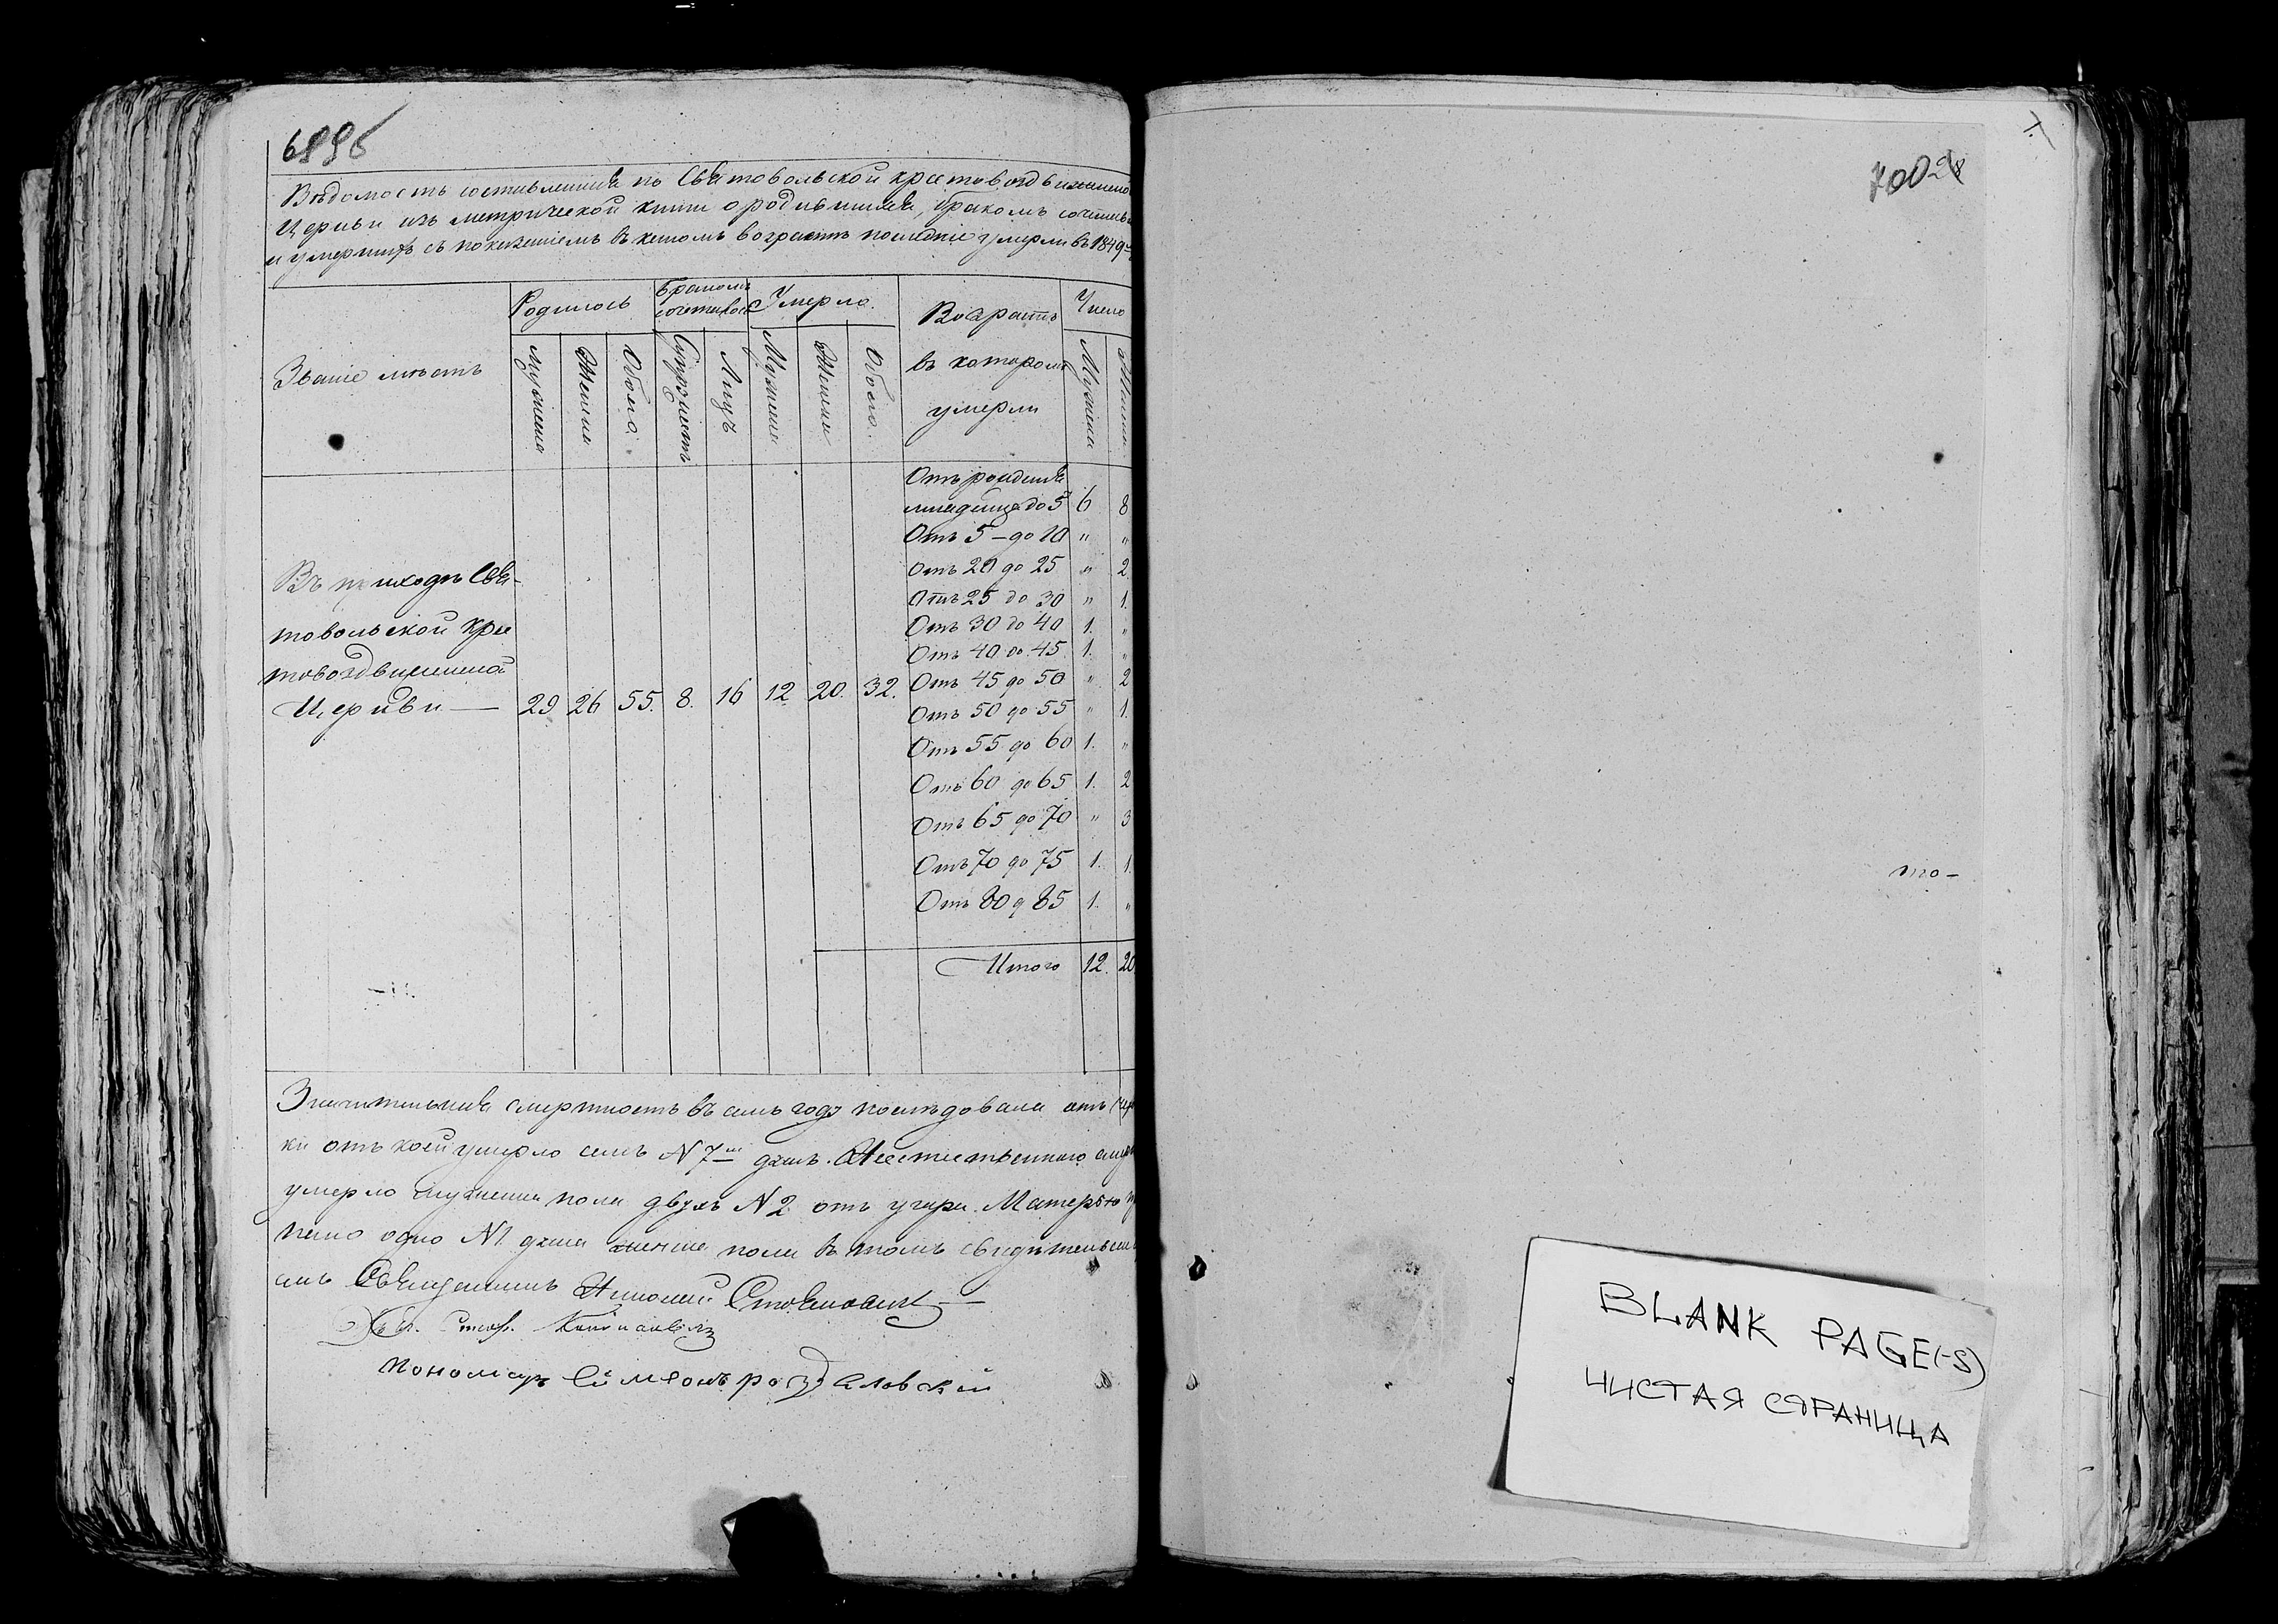 Вѣдомость составленная по Святовольской крестовоздвиженс
Церкви изъ метрической книги о родившихся, бракомъ сочетав
и умершихъ съ показаніемъ въ какомъ возрастѣ послѣдніе умерли въ 1849
Званіе мѣстъ
Родилось
Бракомъ сочеталось
Умерло.
Возрастъ въ которомъ умерли
Число
Мужеска
Женска
Обоего
Супружествъ
Лицъ
Мужеска
Женска
Обоего.
Мужеска
Отъ рожденія
младенца до 5 6 8
Отъ 5 – до 10 " "
Отъ 20 до 25 " 2
Отъ 25 до 30 " 1.
Отъ 30 до 40 1. "
Отъ 40 до 45. 1. "
Отъ 45 до 50 " 2
Отъ 50 до 55 " 1.
Отъ 55 до 60 1. "
Отъ 60 до 65 1. 2
Отъ 65 до 70 " 3
Отъ 70 до 75 1. 1.
Отъ 80 д 85 1. "
Итого 12. 20
Въ приходѣ Свя-
товольской Крес
товоздвиженской
Церкви — 29 26 55. 8. 16 12 20. 32.
Значительная смертность въ семъ году послѣдовала отъ
ки отъ коей умерло семь N 7 душъ. Неестественною
умерло мужеска пола двухъ N 2 отъ угару. Матерью
одно N 1. душа женска пола въ томъ свидѣтельству
емъ Священникъ Николай
Пономарь Симеонъ
то-
BLANK PAGE(-S)
ЧИСТАЯ СТРАНИЦА